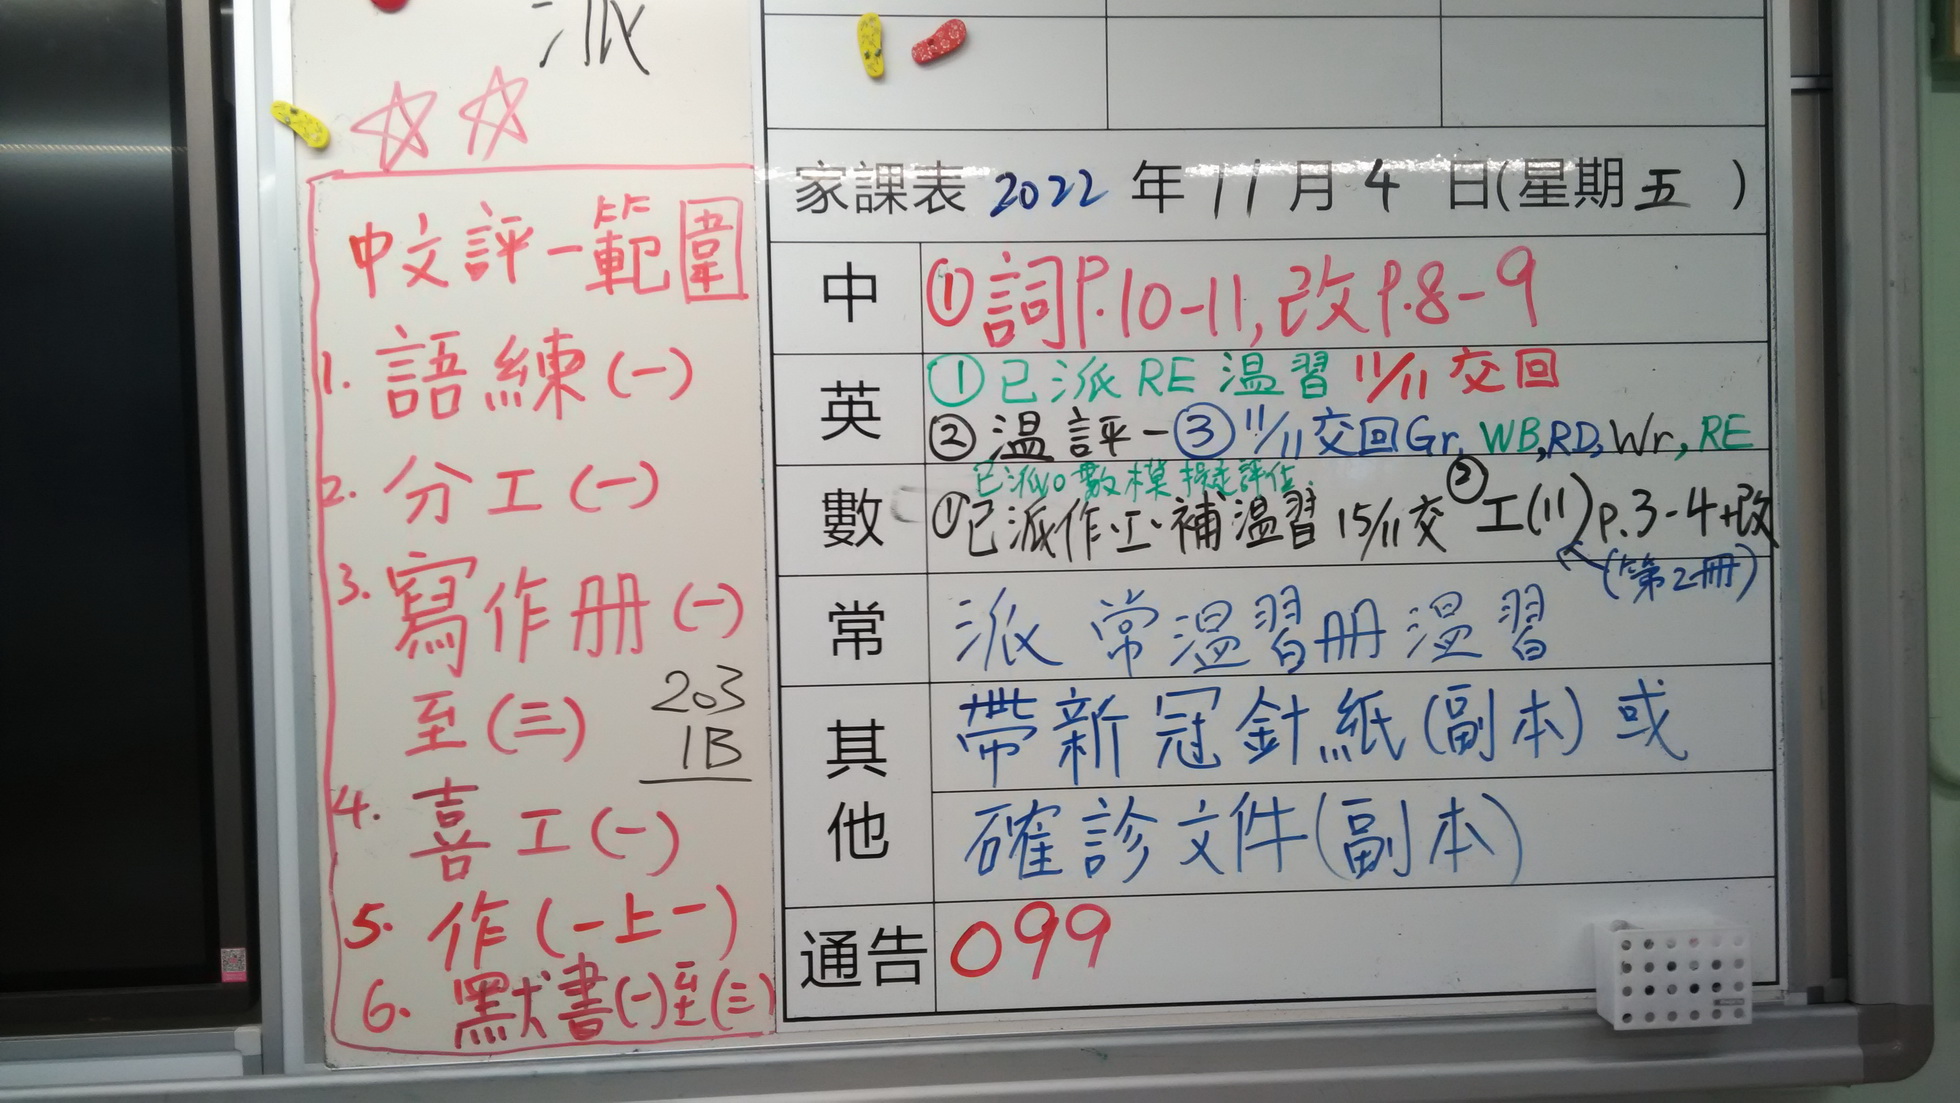 派
中文評一範圍
1. 語練(一)
2. 分工(一)
3. 寫作册(一)
至(三)
203
1B
4. 喜工(一)
5. 作(一上一)
6. 默書(一)至(三)
家課表 2022 年 11 月 4 日(星期五)
中 ①詞P.10-11,改P.8-9
英 ①已派RE溫習 11/11 交回
②溫評一 ③ 11/11 交回Gr, WB,RD,Wr,RE
已派 數模擬評估
數 ①已派作.工.補溫習 15/11交 ②工(11)p.3-4+改
(第2冊)
常 派常溫習册溫習
其他 帶新冠針紙(副本)或
確診文件(副本)
通告 099